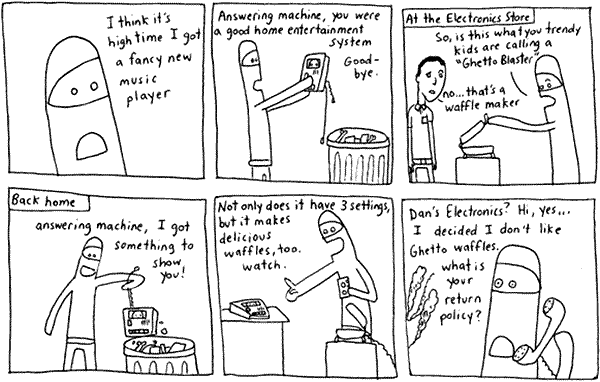 I think it's
high time I got
a fancy new
music
player
Answering machine, you were
a good home entertainment
system
Good-
bye.
At the Electronics Store
So, is this what you trendy
kids are calling a
"Ghetto Blaster"
no... that's a
waffle maker
Back home
answering machine, I got
something to
show
you!
Not only does it have 3 settings,
but it makes
delicious
waffles, too.
watch.
Dan's Electronics? Hi, yes...
I decided I don't like
Ghetto waffles.
what is
your
return
policy?